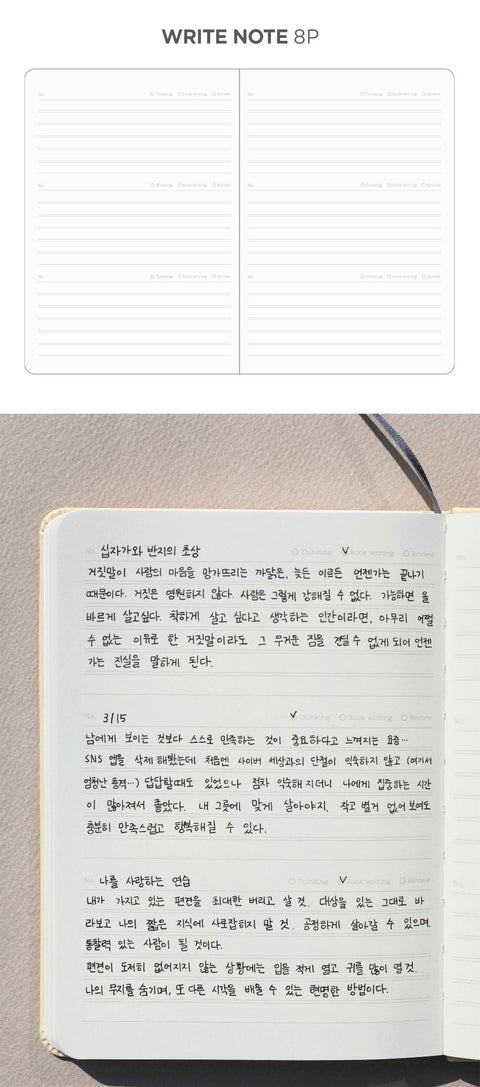 WRITE NOTE 8P
No. ○ Thinking ○ Book writing ○ Review
No. ○ Thinking ○ Book writing ○ Review
No. ○ Thinking ○ Book writing ○ Review
No. ○ Thinking ○ Book writing ○ Review
No. ○ Thinking ○ Book writing ○ Review
No. ○ Thinking ○ Book writing ○ Review
No. 십자가와 반지의 초상 ○ Thinking ✓ Book writing ○ Review
거짓말이 사람의 마음을 망가뜨리는 까닭은, 늦든 이르든 언젠가는 끝나기
때문이다. 거짓은 영원하지 않다. 사람은 그렇게 강해질 수 없다. 가능하면 올
바르게 살고싶다. 착하게 살고 싶다고 생각하는 인간이라면, 아무리 어쩔
수 없는 이유로 한 거짓말이라도 그 무거운 짐을 견딜 수 없게 되어 언젠
가는 진실을 말하게 된다.
No. 3/15 ✓ Thinking ○ Book writing ○ Review
남에게 보이는 것보다 스스로 만족하는 것이 중요하다고 느껴지는 요즘…
SNS 앱을 삭제 해봤는데 처음엔 사이버 세상과의 단절이 익숙하지 않고 (여기서
엄청난 충격…) 답답할때도 있었으나 점차 익숙해 지더니 나에게 집중하는 시간
이 많아져서 좋았다. 내 그릇에 맞게 살아야지. 작고 별거 없어 보여도
충분히 만족스럽고 행복해질 수 있다.
No. 나를 사랑하는 연습 ○ Thinking ✓ Book writing ○ Review
내가 가지고 있는 편견을 최대한 버리고 살 것. 대상을 있는 그대로 바
라보고 나의 짧은 지식에 사로잡히지 말 것. 공정하게 살아갈 수 있으며,
통찰력 있는 사람이 될 것이다.
편견이 도저히 없어지지 않는 상황에는 입을 적게 열고 귀를 많이 열 것.
나의 무지를 숨기며, 또 다른 시각을 배울 수 있는 현명한 방법이다.
No.
No.
No.